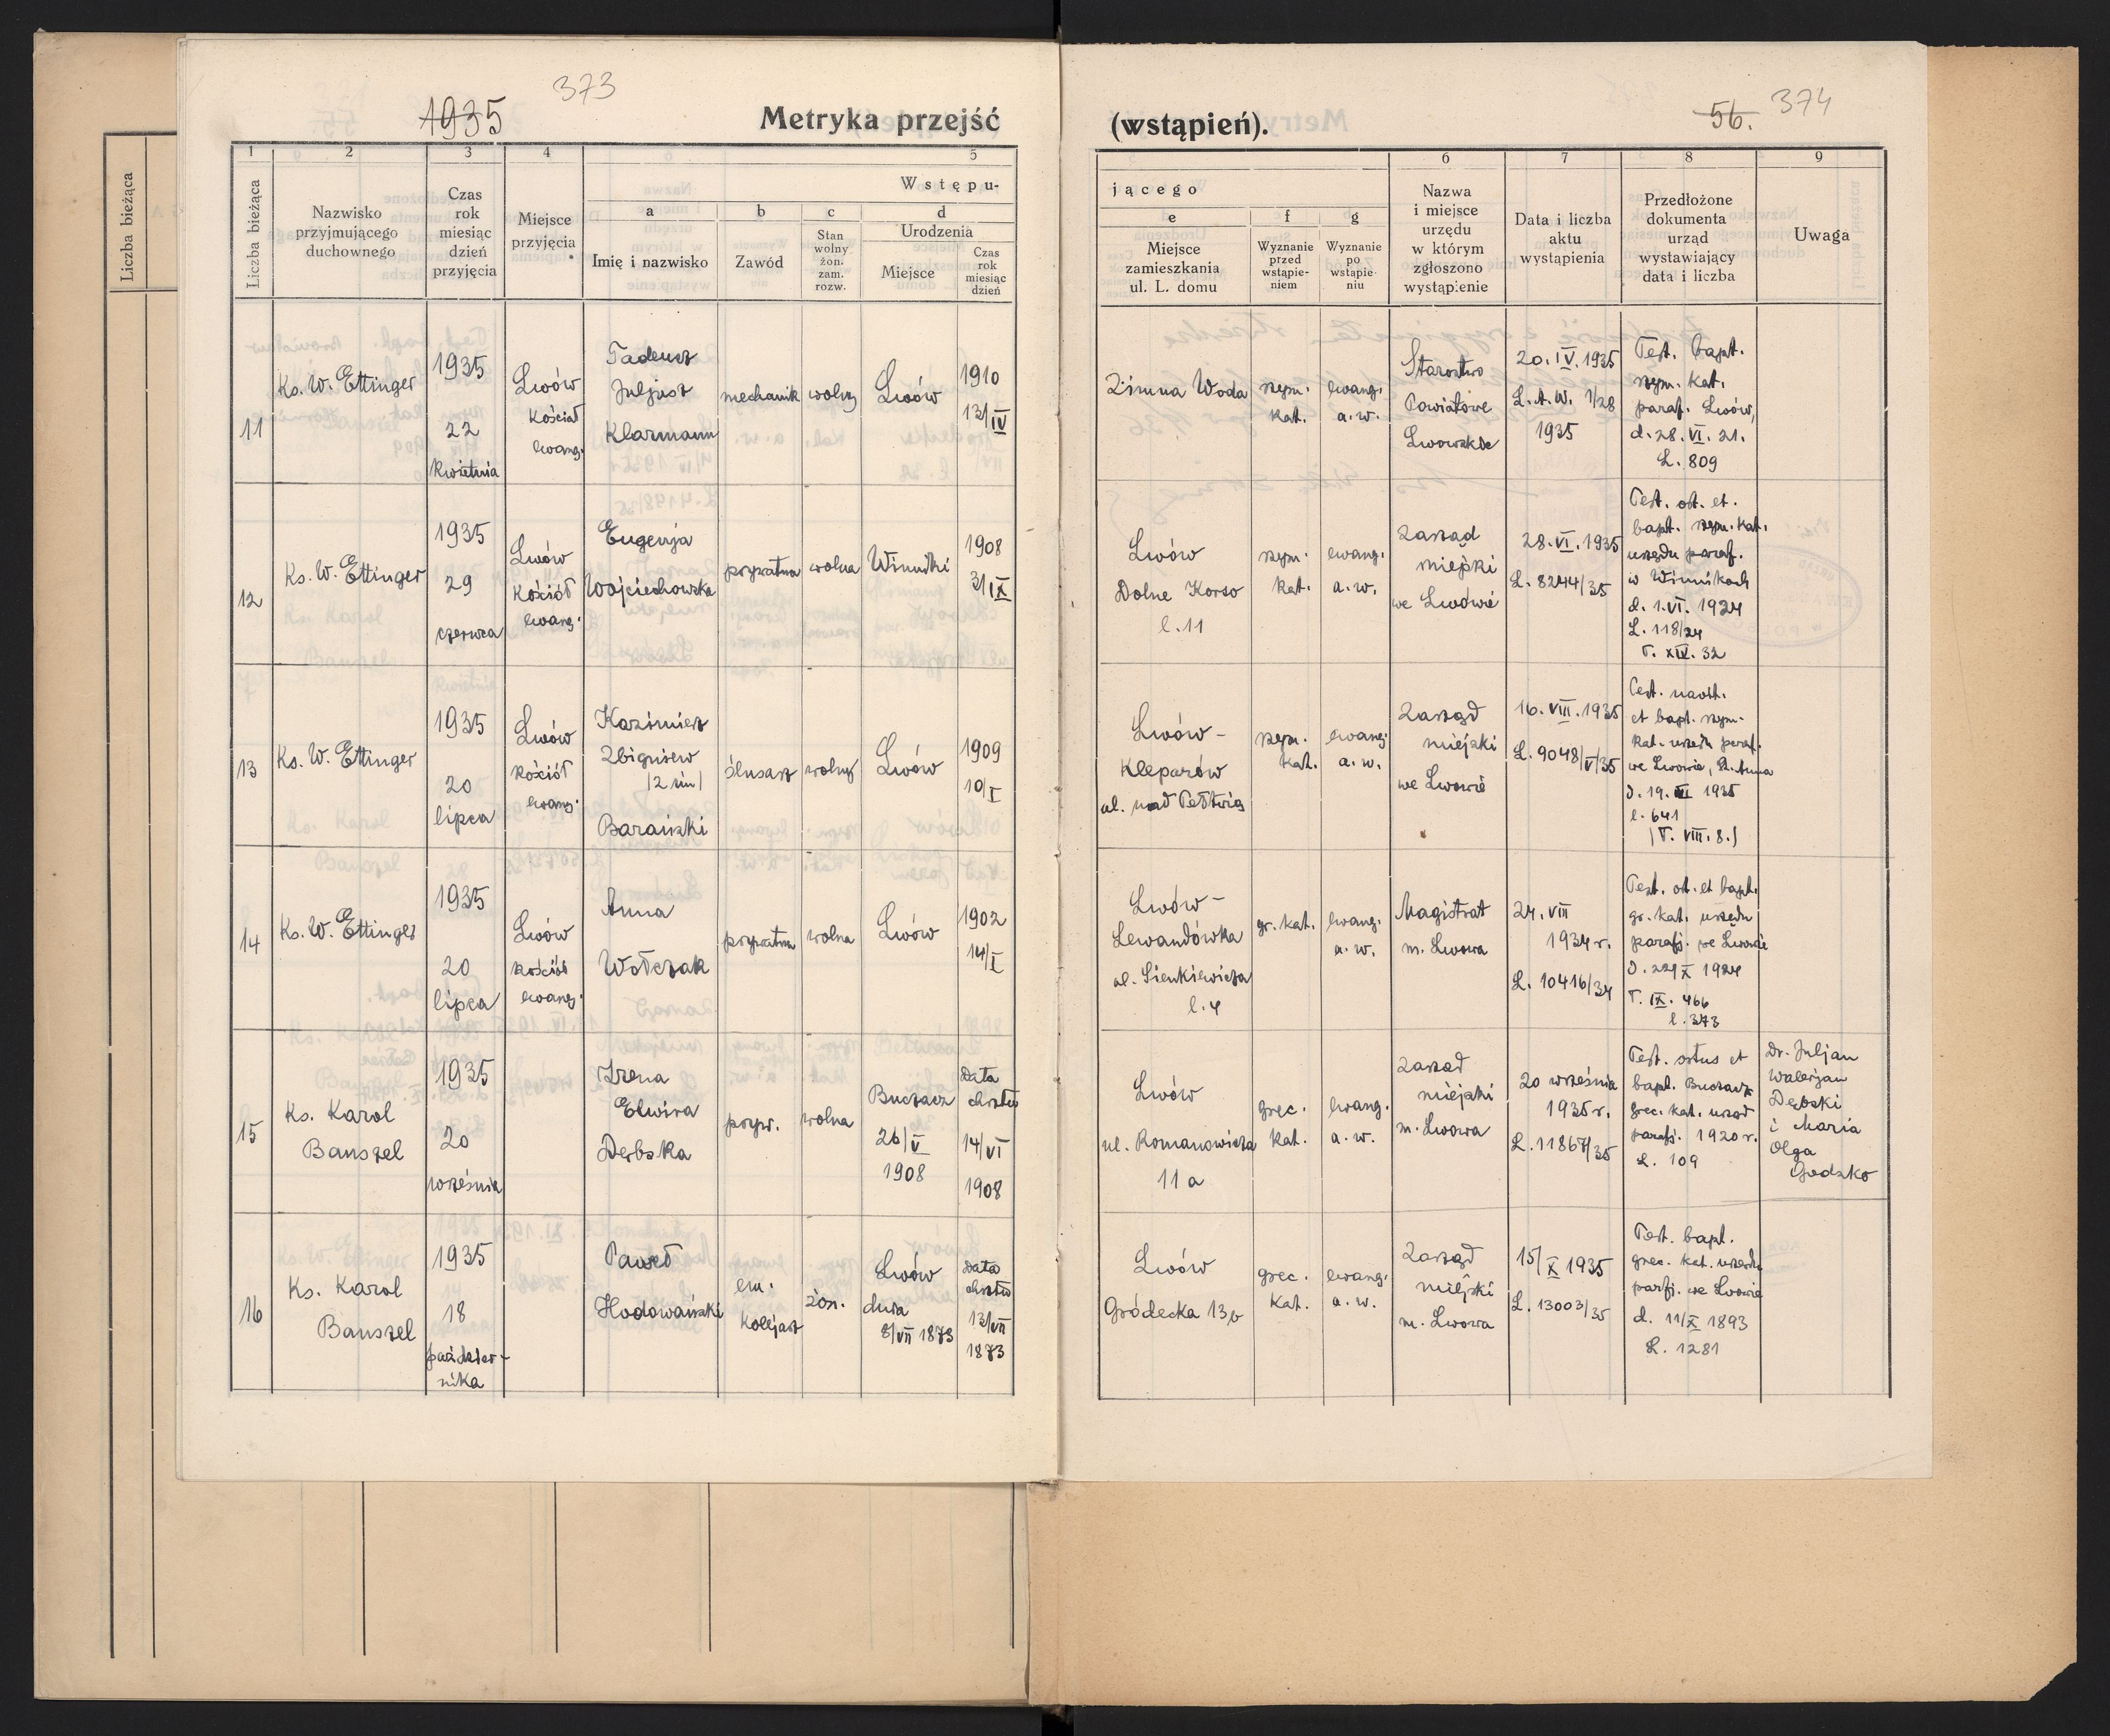 373
1935
Metryka przejść
(wstąpień).
56.
374
Liczba bieżąca
1
2
3
4
5
Liczba bieżąca
Nazwisko
przyjmującego
duchownego
Czas
rok
miesiąc
dzień
przyjęcia
Miejsce
przyjęcia
Wstępu-
a
Imię i nazwisko
b
Zawód
c
Stan
wolny
żon.
zam.
rozw.
d
Urodzenia
Miejsce
Czas
rok
miesiąc
dzień
jącego
6
7
8
9
e
Miejsce
zamieszkania
ul. L. domu
f
Wyznanie
przed
wstąpie-
niem
g
Wyznanie
po
wstąpie-
niu
Nazwa
i miejsce
urzędu
w którym
zgłoszono
wystąpienie
Data i liczba
aktu
wystąpienia
Przedłożone
dokumenta
urząd
wystawiający
data i liczba
Uwaga
11
Ks. W. Ettinger
1935
22
kwietnia
Lwów
Kościół
ewang.
Tadeusz
Juljusz
Klarmann
mechanik
wolny
Lwów
1910
13/IV
Zimna Woda
rzym.
kat.
ewang.
a. w.
Starostwo
Powiatowe
Lwowskie
20. IV. 1935
L. A. W. 1/28
1935
Test. bapt.
rzym. kat.
paraf. Lwów,
d. 28. VI. 21.
L. 809
12
Ks. W. Ettinger
1935
29
czerwca
Lwów
Kościół
ewang.
Eugenja
Wojciechowska
prywatna
wolna
Winniki
1908
31/IX
Lwów
Dolne Korso
l. 11
rzym.
kat.
ewang.
a. w.
Zarząd
miejski
we Lwowie
28. VI. 1935
L. 8244/35
Test. ort. et.
bapt. rzym. kat.
urzędu paraf.
w Winnikach
d. 1. VI. 1924
L. 118/24
T. XIV. 32
13
Ks. W. Ettinger
1935
20
lipca
Lwów
Kościół
ewang.
Kazimierz
Zbigniew
/2 im/
Barański
ślusarz
wolny
Lwów
1909
10/I
Lwów -
Kleparów
ul. nad Pełtwią
rzym.
kat.
ewang.
a. w.
Zarząd
miejski
we Lwowie
16. VIII. 1935
L. 9048/V/35
Test. naost.
et bapt. rzym.
kat. urzędu paraf.
we Lwowie, St. Anna
d. 19. III 1935
l. 641
/T. VIII. 8./
14
Ks. W. Ettinger
1935
20
lipca
Lwów
Kościół
ewang.
Anna
Wołczak
prywatna
wolna
Lwów
1902
14/I
Lwów -
Lewandówka
ul. Sienkiewicza
l. 4
gr. kat.
ewang.
a. w.
Magistrat
m. Lwowa
24. VIII
1934 r.
L. 10416/34
Test. ort. et bapt.
gr. kat. urzędu
parafj. we Lwowie
d. 22/X 1924
T. IX. 466
l. 373
15
Ks. Karol
Banszel
1935
20
września
Irena
Elwira
Dębska
pryw.
wolna
Buczacz
26/V
1908
data
chrztu
14/VI
1908
Lwów
ul. Romanowicza
11 a
grec.
kat.
ewang.
a. w.
Zarząd
miejski
m. Lwowa
20 września
1935 r.
L. 11867/35
Test. ortus et
bapt. Buczacz
grec. kat. urząd
parafj. 1920 r.
L. 109
Dr. Juljan
Walerjan
Dębski
i Maria
Olga
Godzko
16
Ks. Karol
Banszel
1935
18
paździer-
nika
Paweł
Hodowański
em.
kolejarz
żon.
Lwów
dnia
8/VII 1873
data
chrztu
13/VII
1873
Lwów
Gródecka 13b
grec.
kat.
ewang.
a. w.
Zarząd
miejski
m. Lwowa
15/X 1935
L. 13003/35
Test. bapt.
grec. kat. urzędu
parfj. we Lwowie
d. 11/X 1893
L. 1281